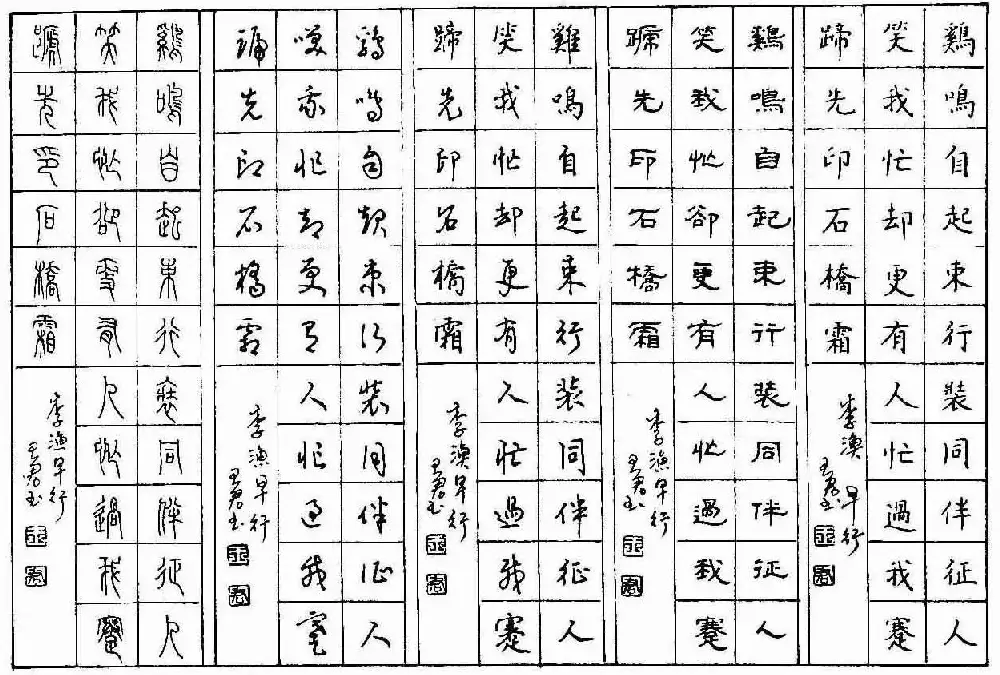 鷄鳴自起束行裝同伴征人
笑我忙却更有人忙過我蹇
蹄先印石橋霜
李漁早行
鷄鳴自起束行裝同伴征人
笑我忙卻更有人忙過我蹇
蹄先印石橋霜
李漁早行
雞鳴自起束行裝同伴征人
笑我忙却更有人忙過我蹇
蹄先印石橋霜
李漁早行
鷄鳴自起束行裝同伴征人
笑我忙却更有人忙過我蹇
蹄先印石橋霜
李漁早行
鷄鳴自起束行裝同伴征人
笑我忙卻更有人忙過我蹇
蹄先印石橋霜
李漁早行